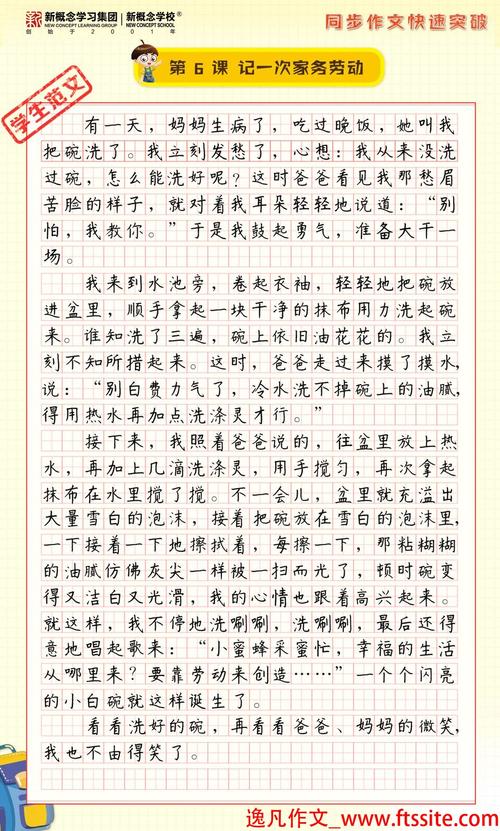 新 新概念学习集团 新概念学校
NEW CONCEPT LEARNING GROUP NEW CONCEPT SCHOOL
创始于2001年
同步作文快速突破
第6课 记一次家务劳动
学生范文
有一天，妈妈生病了，吃过晚饭，她叫我
把碗洗了。我立刻发愁了，心想：我从来没洗
过碗，怎么能洗好呢？这时爸爸看见我那愁眉
苦脸的样子，就对着我耳朵轻轻地说道：“别
怕，我教你。”于是我鼓起勇气，准备大干一
场。
我来到水池旁，卷起衣袖，轻轻地把碗放
进盆里，顺手拿起一块干净的抹布用力洗起碗
来。谁知洗了三遍，碗上依旧油花花的。我立
刻不知所措起来。这时，爸爸走过来摸了摸水，
说：“别白费力气了，冷水洗不掉碗上的油腻，
得用热水再加点洗涤灵才行。”
接下来，我照着爸爸说的，往盆里放上热
水，再加上几滴洗涤灵，用手搅匀，再次拿起
抹布在水里搅了搅。不一会儿，盆里就充溢出
大量雪白的泡沫，接着把碗放在雪白的泡沫里，
一下接着一下地擦拭着，每擦一下，那粘糊糊
的油腻仿佛灰尖一样被一扫而光了，顿时碗变
得又洁白又光滑，我的心情也跟着高兴起来。
就这样，我不停地洗唰唰，洗唰唰，最后还得
意地唱起歌来：“小蜜蜂采蜜忙，幸福的生活
从哪里来？要靠劳动来创造……”一个个闪亮
的小白碗就这样诞生了。
看看洗好的碗，再看看爸爸、妈妈的微笑，
我也不由得笑了。
逸凡作文_www.ftssite.com